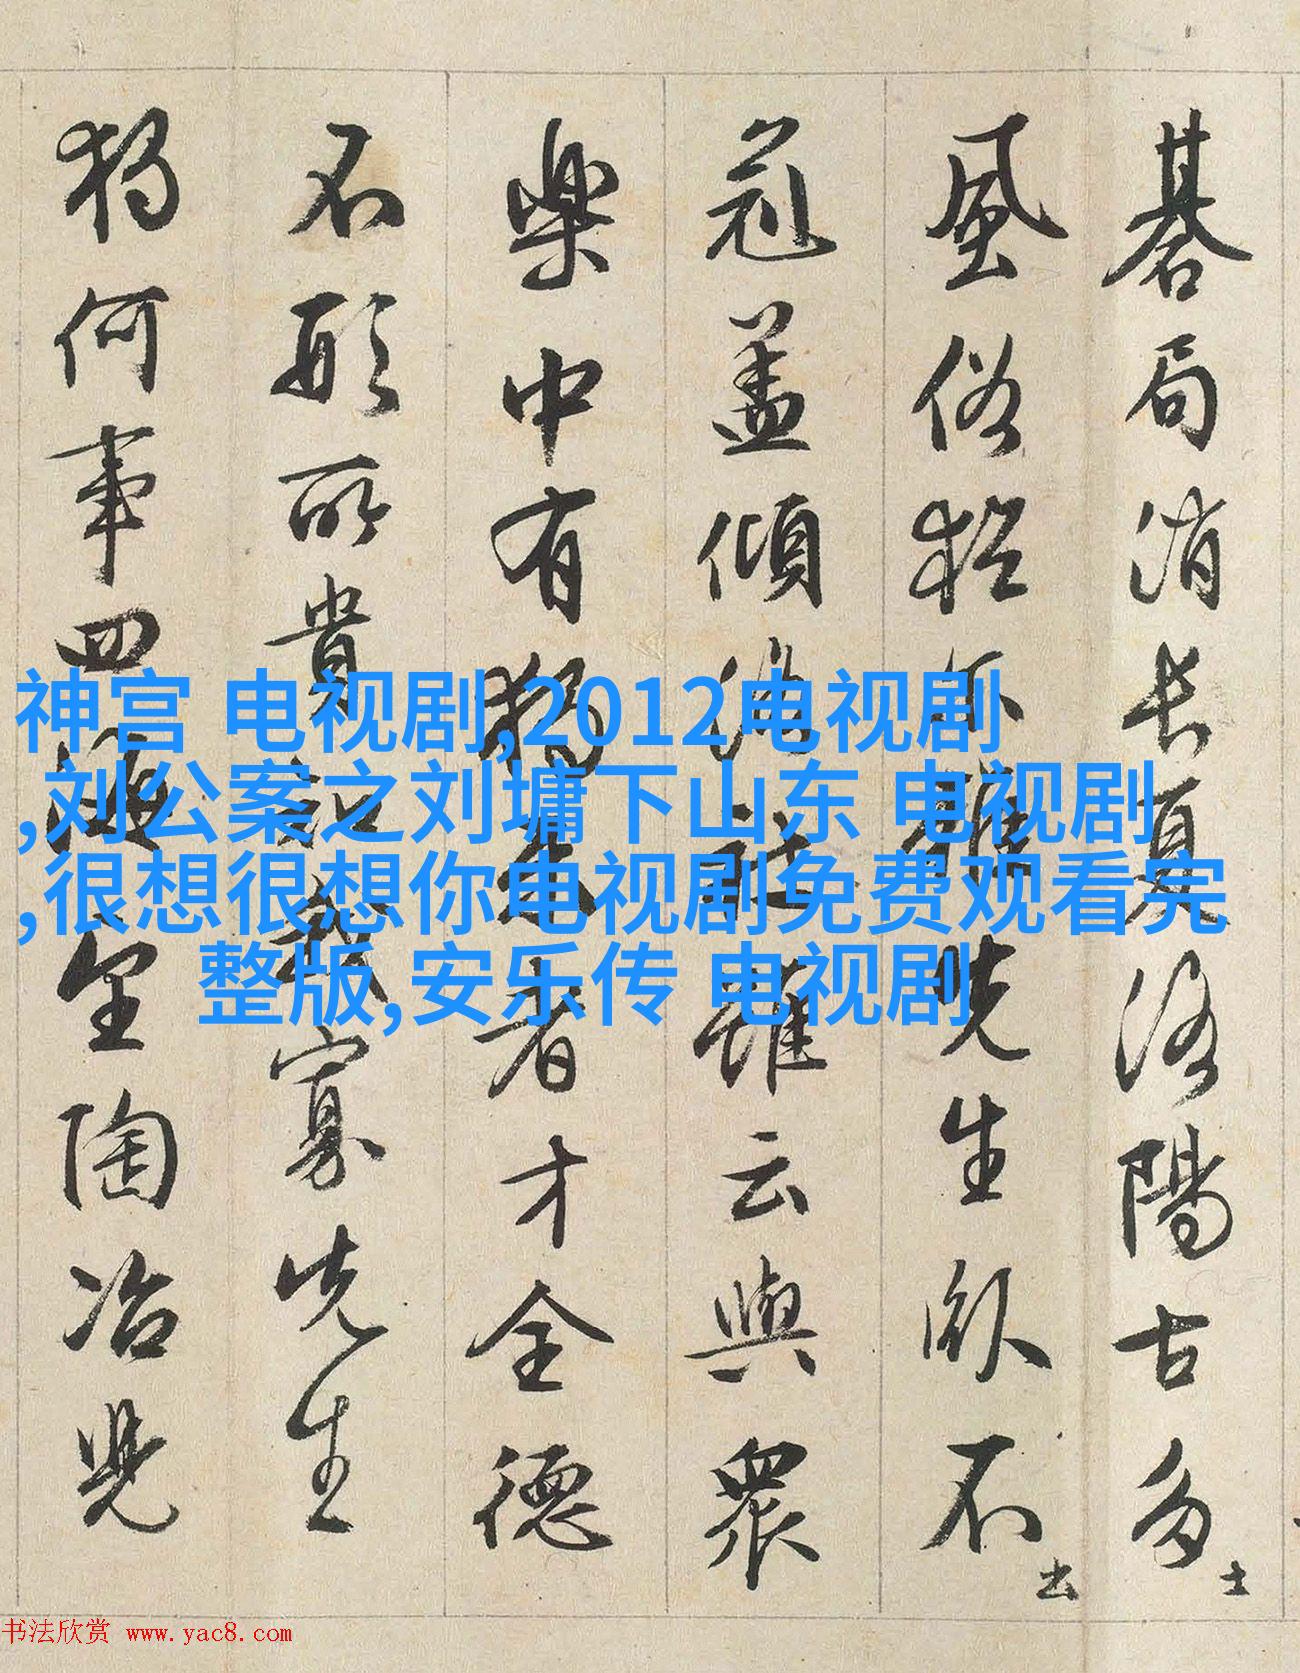 碁局消長夏洛陽古多士
風俗猶不先生卧不出
冠蓋傾雖云與衆
樂中有獨者才全德
不形所貴寡先生
獨何事四里陶冶
神宫 电视剧,2012电视剧
,刘公案之刘墉下山东 电视剧
,很想很想你电视剧免费观看完
整版,安乐传 电视剧
书法欣赏 www.yac8.com